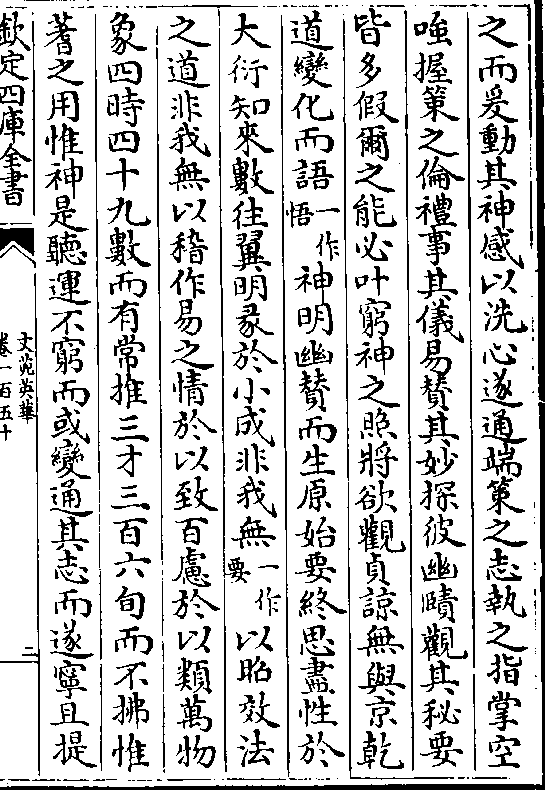 之而爰動其神感以洗心遂通端策之志執之指掌空
嗤握策之倫禮事其儀易賛其妙探彼幽賾觀其秘要
皆多假爾之能必叶窮神之照將欲觀貞諒無與京乾
道變化而語一作悟神明幽賛而生原始要終思盡性於
大衍知來數往翼明彖於小成非我無一作要以昭效法
之道非我無以稽作易之情於以致百慮於以類萬物
象四時四十九數而有常推三才三百六旬而不拂惟
蓍之用惟神是聽運不窮而或變通其志而遂寧且提
欽定四庫全書
文苑英華
卷一百五十
二